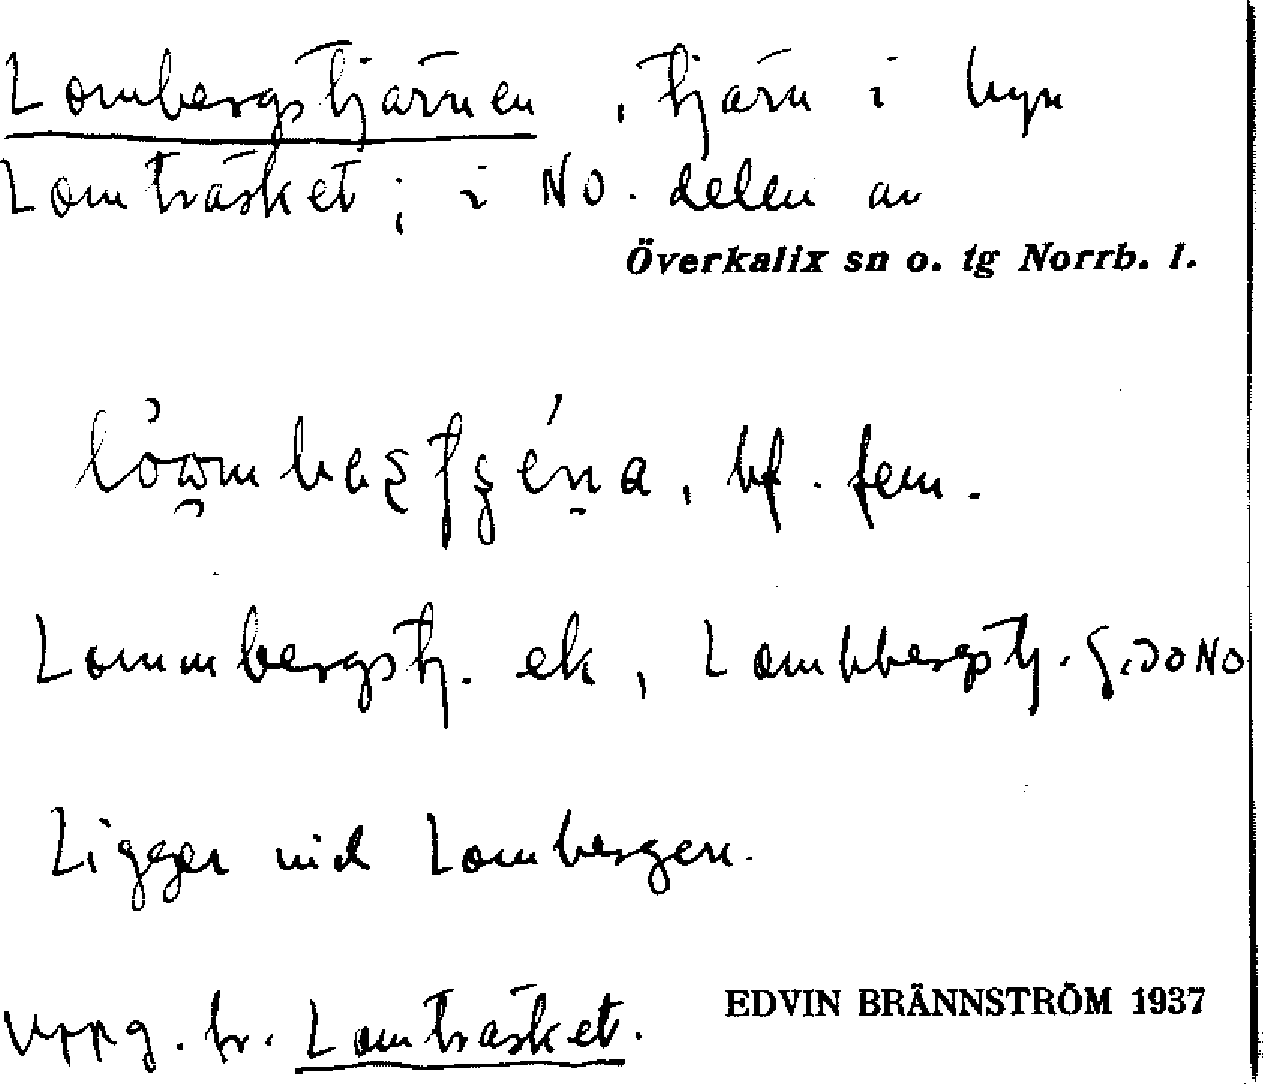 Lombergstjärnen, tjärn i byn
Lomträsket; i NO. delen av
Överkalix sn o. tg Norrb. l.
bf. fem.
Lommbergstj. ek, Lombbergstj. G.30NO
Ligger vid Lombergen.
Uppg. fr. Lomträsket.
EDVIN BRÄNNSTRÖM 1937